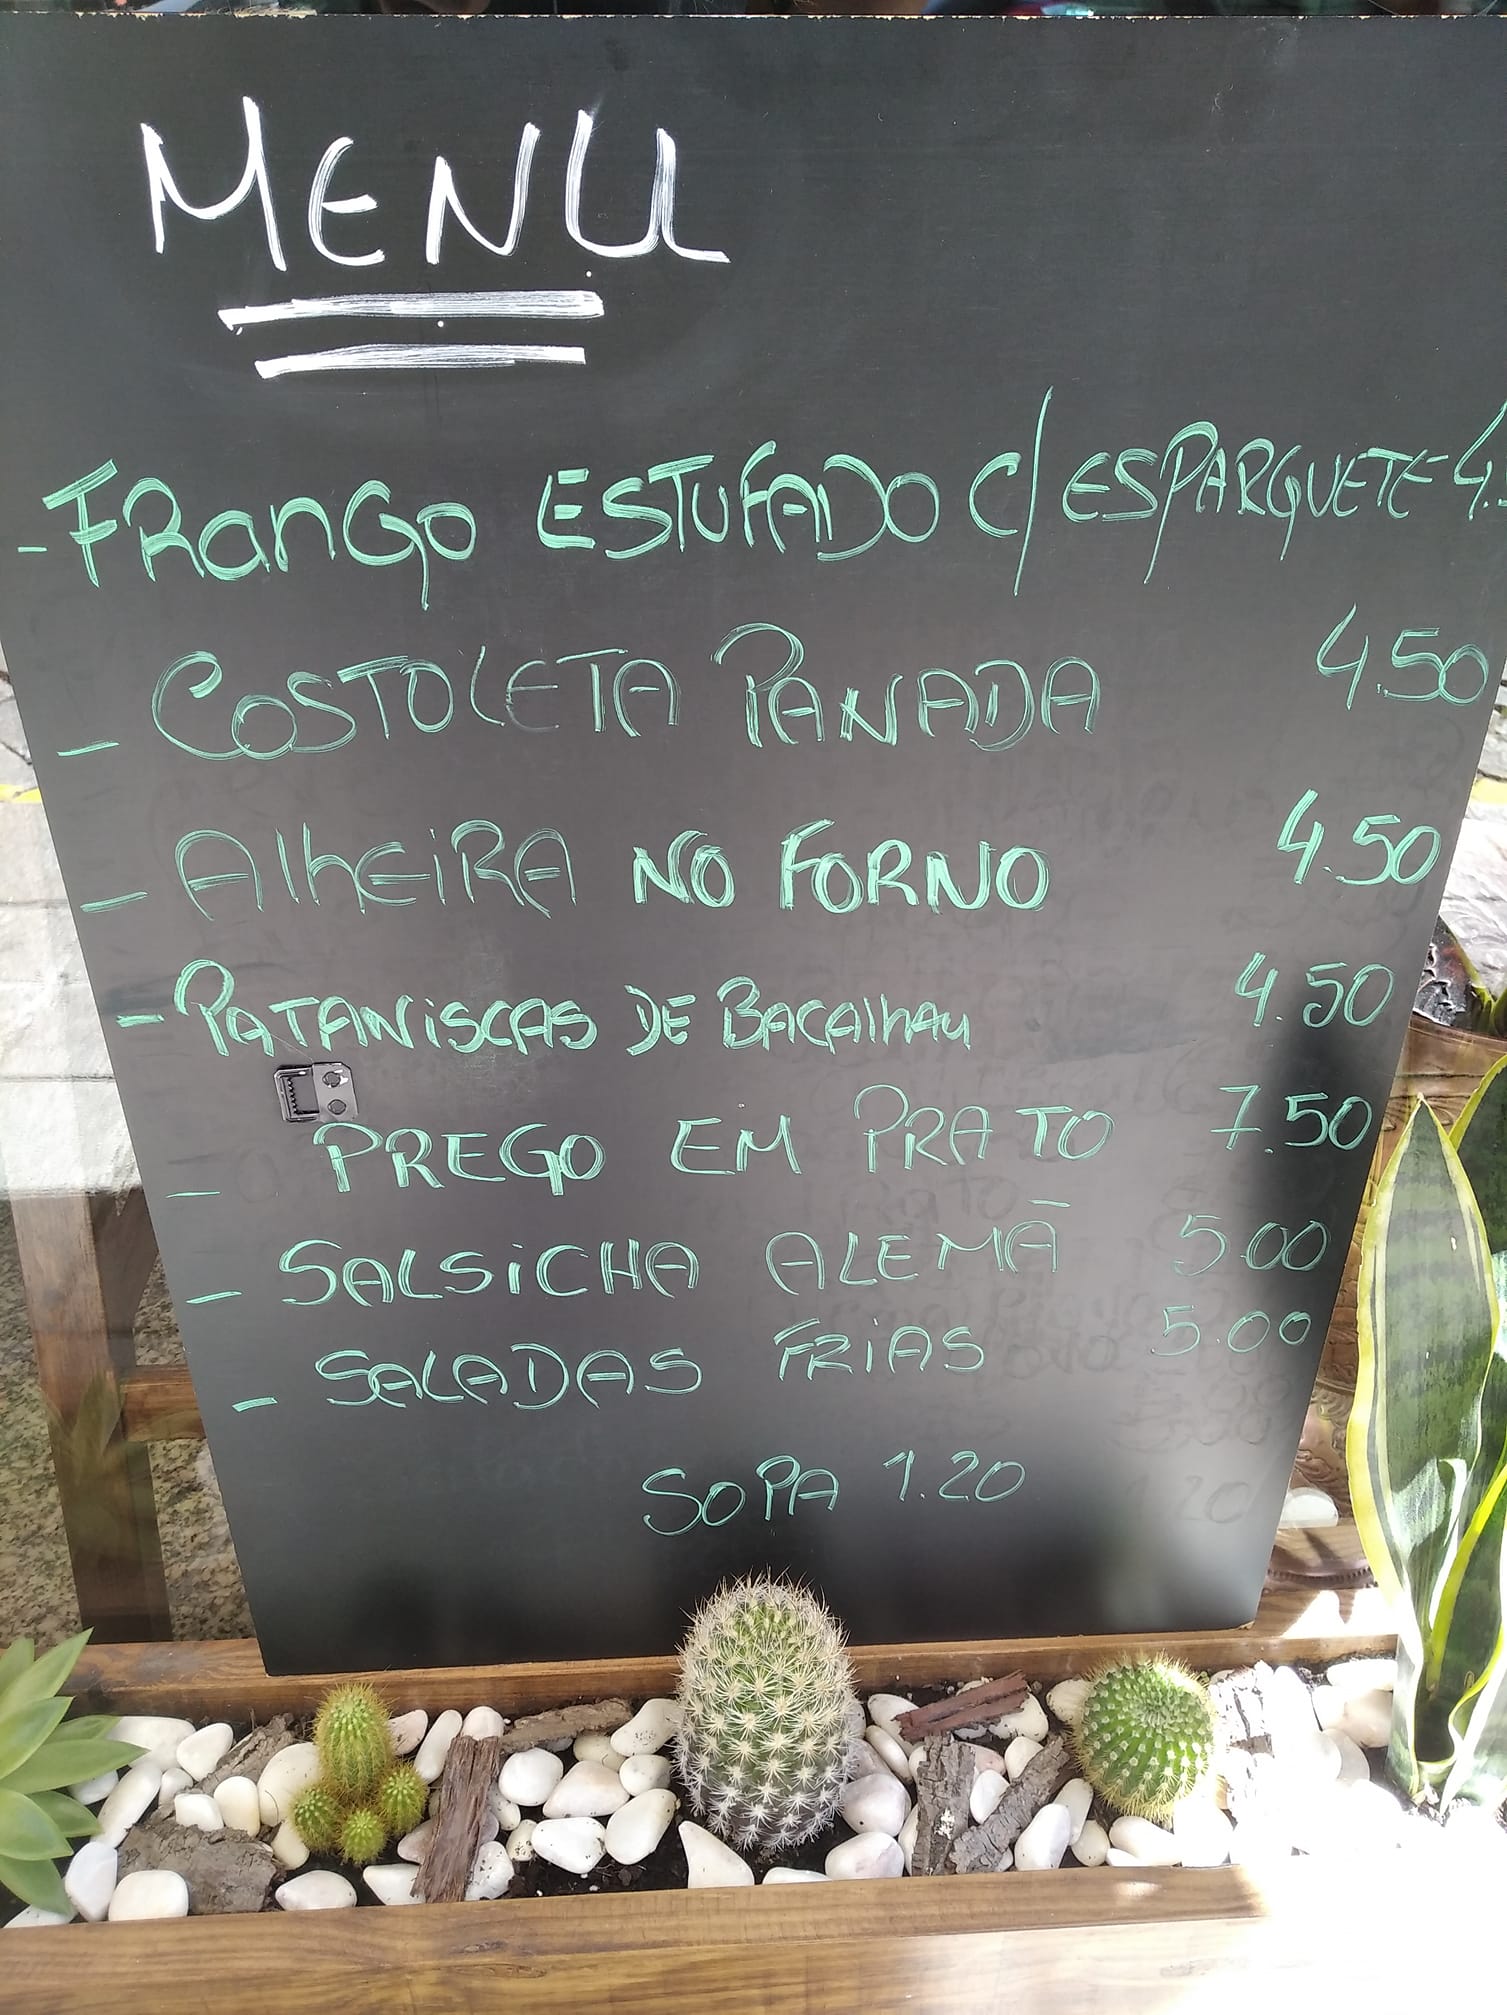 MENU
- FRANGO ESTUFADO C/ ESPARGUETE 4.
- COSTOLETA PANADA 4.50
- AlhEiRA NO FORNO 4.50
- PATANiSCAS DE BACAlhau 4.50
- PREGO EM PRATO 7.50
- SALSiCHA ALEMÃ 5.00
- SALADAS FRiAS 5.00
SOPA 1.20